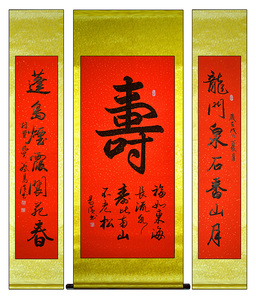 龍門泉石香山月
壽
福如東海
長流水
壽比南山
不老松
蓬島煙霞閬苑春